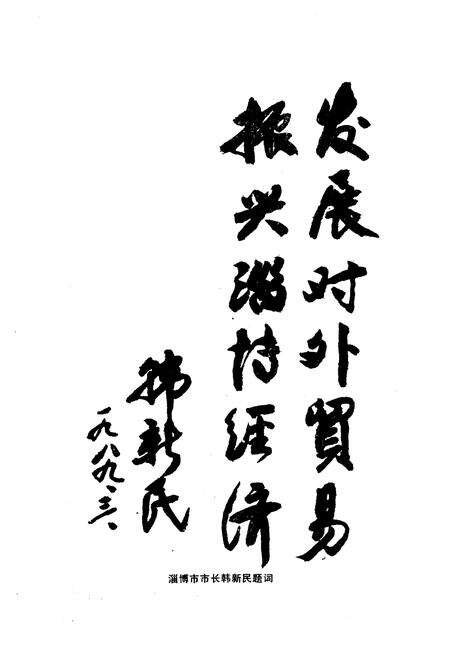 发展对外貿易
振兴淄博经济
韩新民
一九八九.三.
淄博市市长韩新民题词